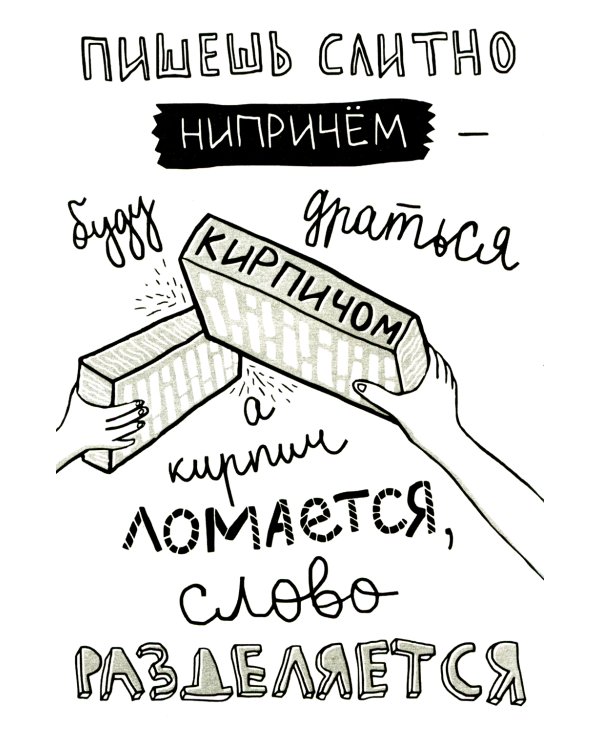 ПИШЕШЬ СЛИТНО
НИПРИЧЁМ —
буду драться
КИРПИЧОМ
а
кирпич
ЛОМАЕТСЯ,
слово
РАЗДЕЛЯЕТСЯ